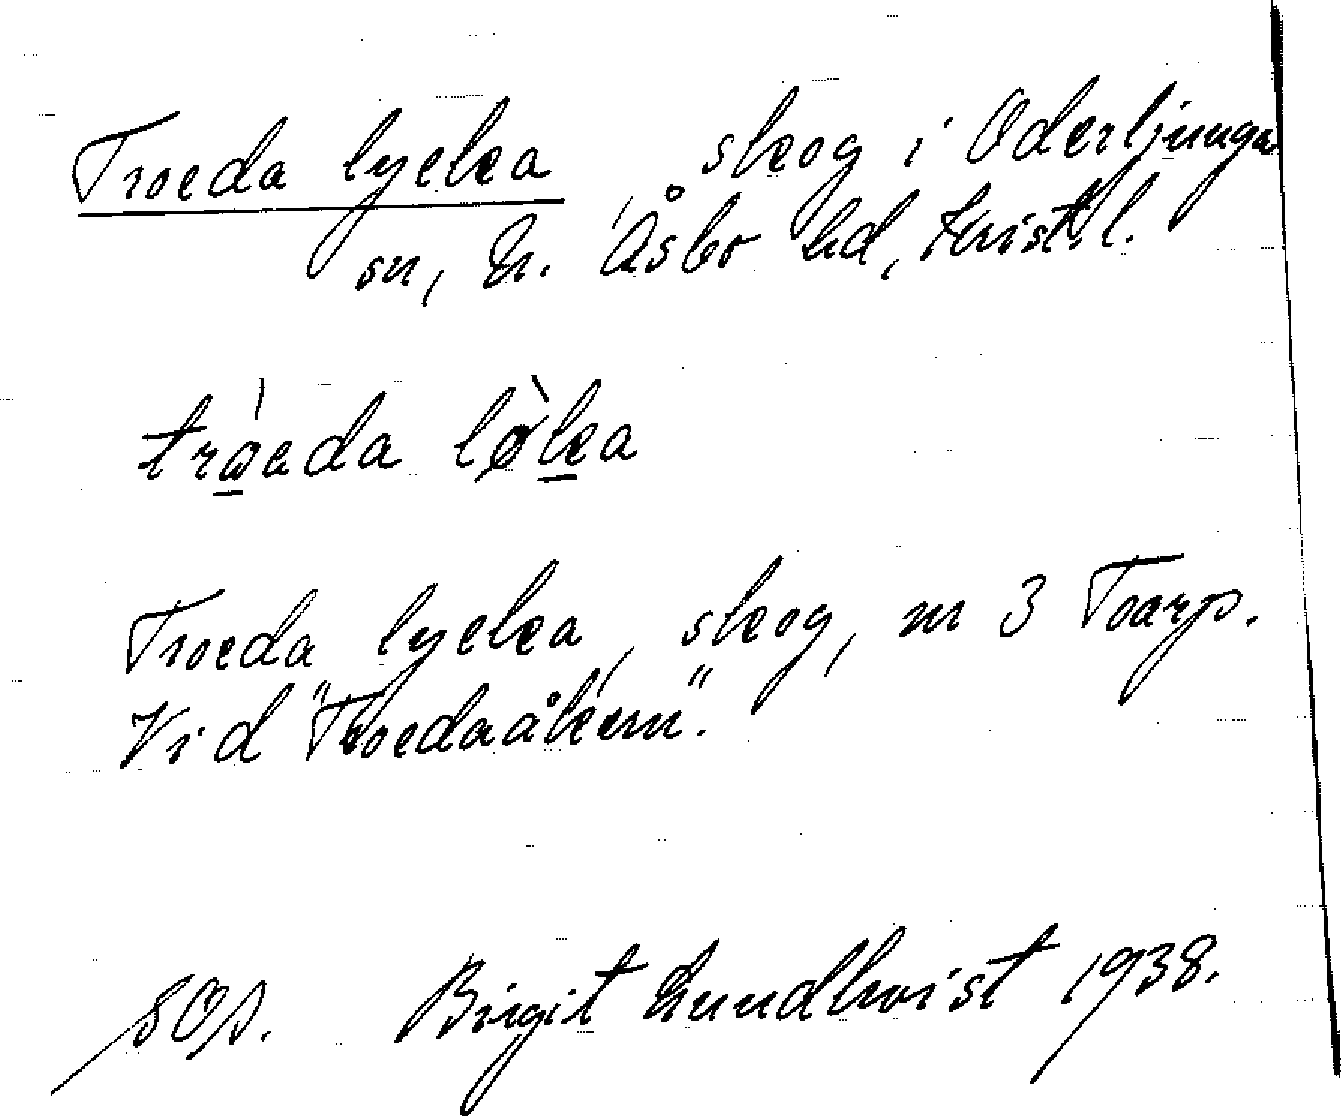 Troeda lycka skog i Oderljunga
sn, N. Åsbo hd, Krist. l.
tråeda løka
Troeda lycka, skog, nr 3 Toarp.
Vid "Troedaåkern".
sop. Birgit Lundkvist 1938.